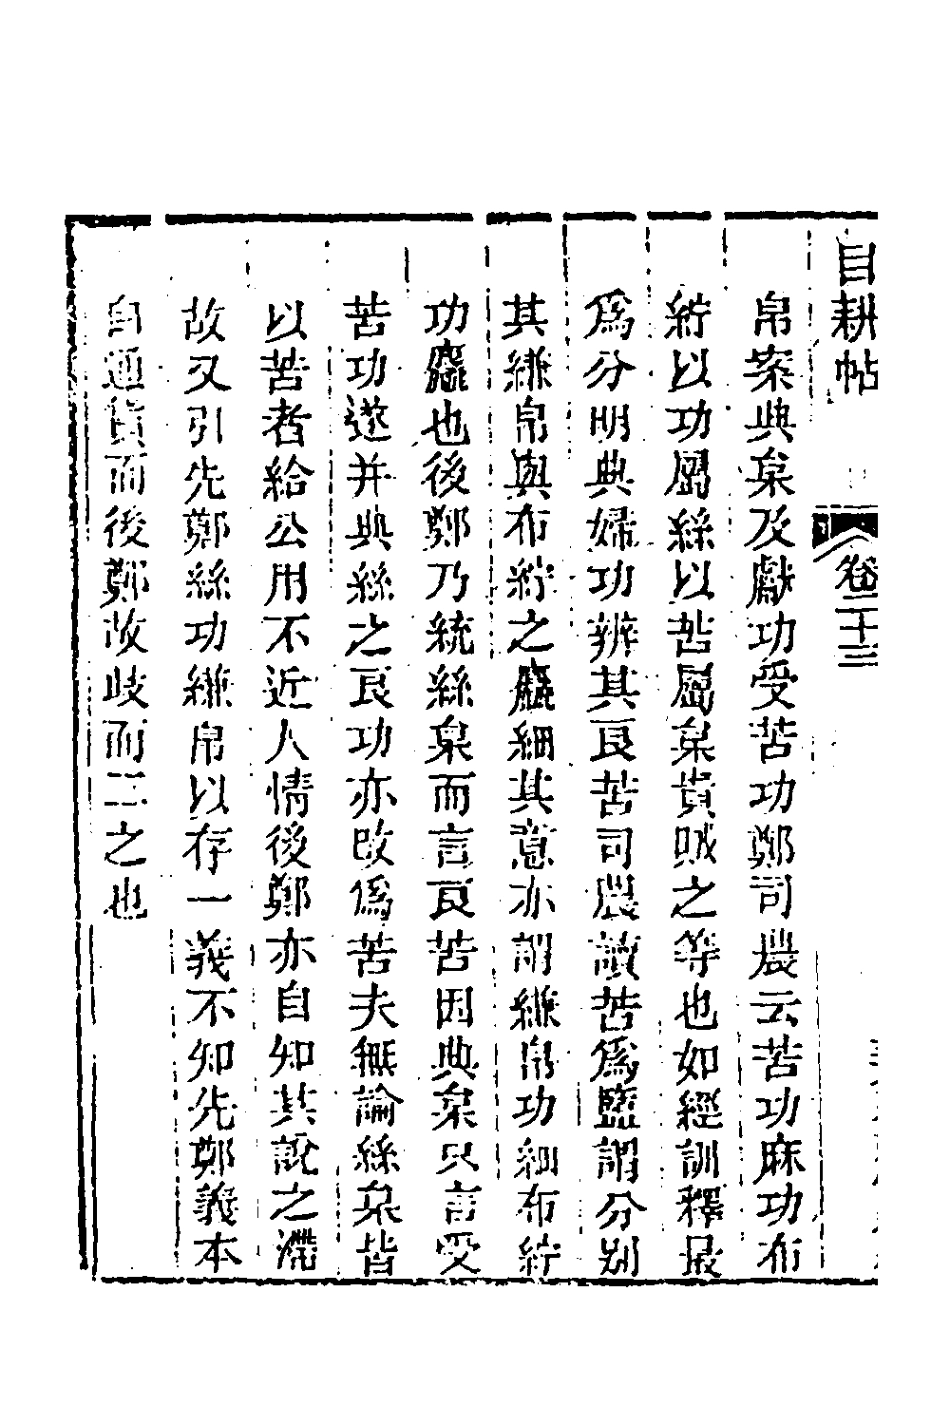 目耕帖
卷二十三
帛案典枲及獻功受苦功鄭司農云苦功麻功布
紵以功屬絲以苦屬枲貴賤之等也如經訓釋最
爲分明典婦功辨其良苦司農讀苦爲盬謂分別
其縑帛與布紵之麤細其意亦謂縑帛功細布紵
功麤也後鄭乃統絲枲而言良苦因典枲只言受
苦功遂并典絲之良功亦改爲苦夫無論絲枲皆
以苦者給公用不近人情後鄭亦自知其說之滯
故又引先鄭絲功縑帛以存一義不知先鄭義本
自通貨而後鄭故歧而二之也